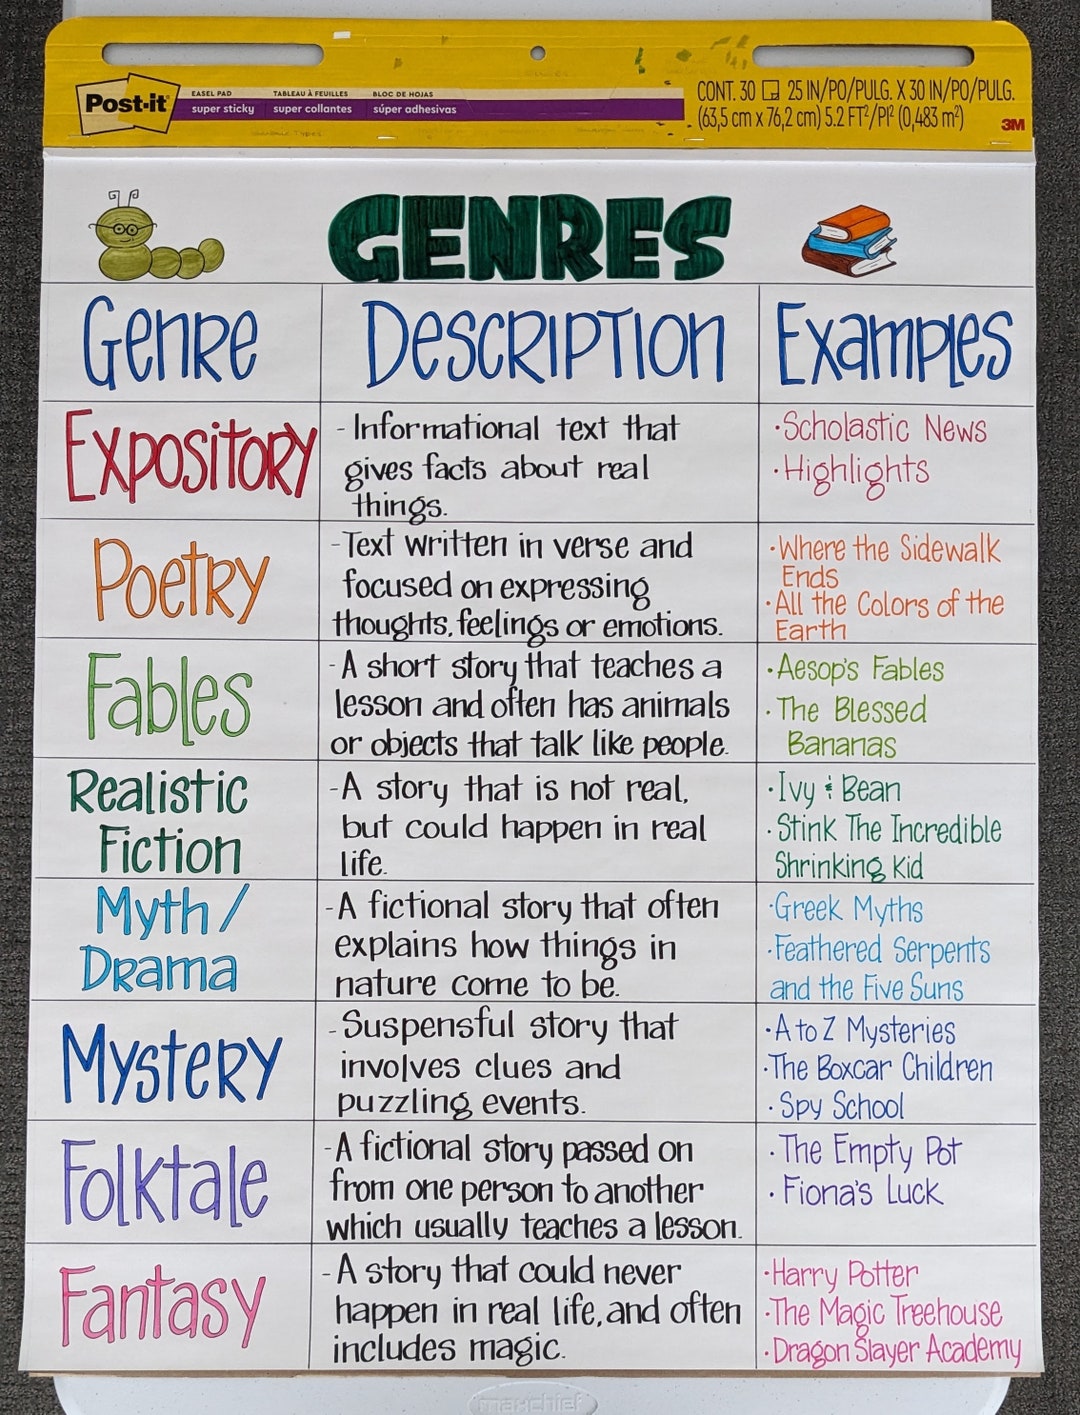 Post-it
EASEL PAD
super sticky
TABLEAU À FEUILLES
super collantes
BLOC DE HOJAS
súper adhesivas
CONT. 30 25 IN/PO/PULG. X 30 IN/PO/PULG.
(63,5 cm x 76,2 cm) 5.2 FT²/PI² (0,483 m²)
3M
GENRES
Genre
Description
Examples
Expository
- Informational text that
gives facts about real
things.
·Scholastic News
·Highlights
Poetry
-Text written in verse and
focused on expressing
thoughts, feelings or emotions.
·Where the Sidewalk
Ends
·All the Colors of the
Earth
Fables
- A short story that teaches a
lesson and often has animals
or objects that talk like people.
·Aesop's Fables
·The Blessed
Bananas
Realistic
Fiction
-A story that is not real,
but could happen in real
life.
·Ivy & Bean
·Stink The Incredible
Shrinking Kid
Myth/
Drama
-A fictional story that often
explains how things in
nature come to be.
·Greek Myths
·Feathered Serpents
and the Five Suns
Mystery
-Suspensful story that
involves clues and
puzzling events.
·A to Z Mysteries
·The Boxcar Children
·Spy School
Folktale
-A fictional story passed on
from one person to another
which usually teaches a lesson.
·The Empty Pot
·Fiona's Luck
Fantasy
-A story that could never
happen in real life, and often
includes magic.
·Harry Potter
·The Magic Treehouse
·Dragon Slayer Academy
maxchief